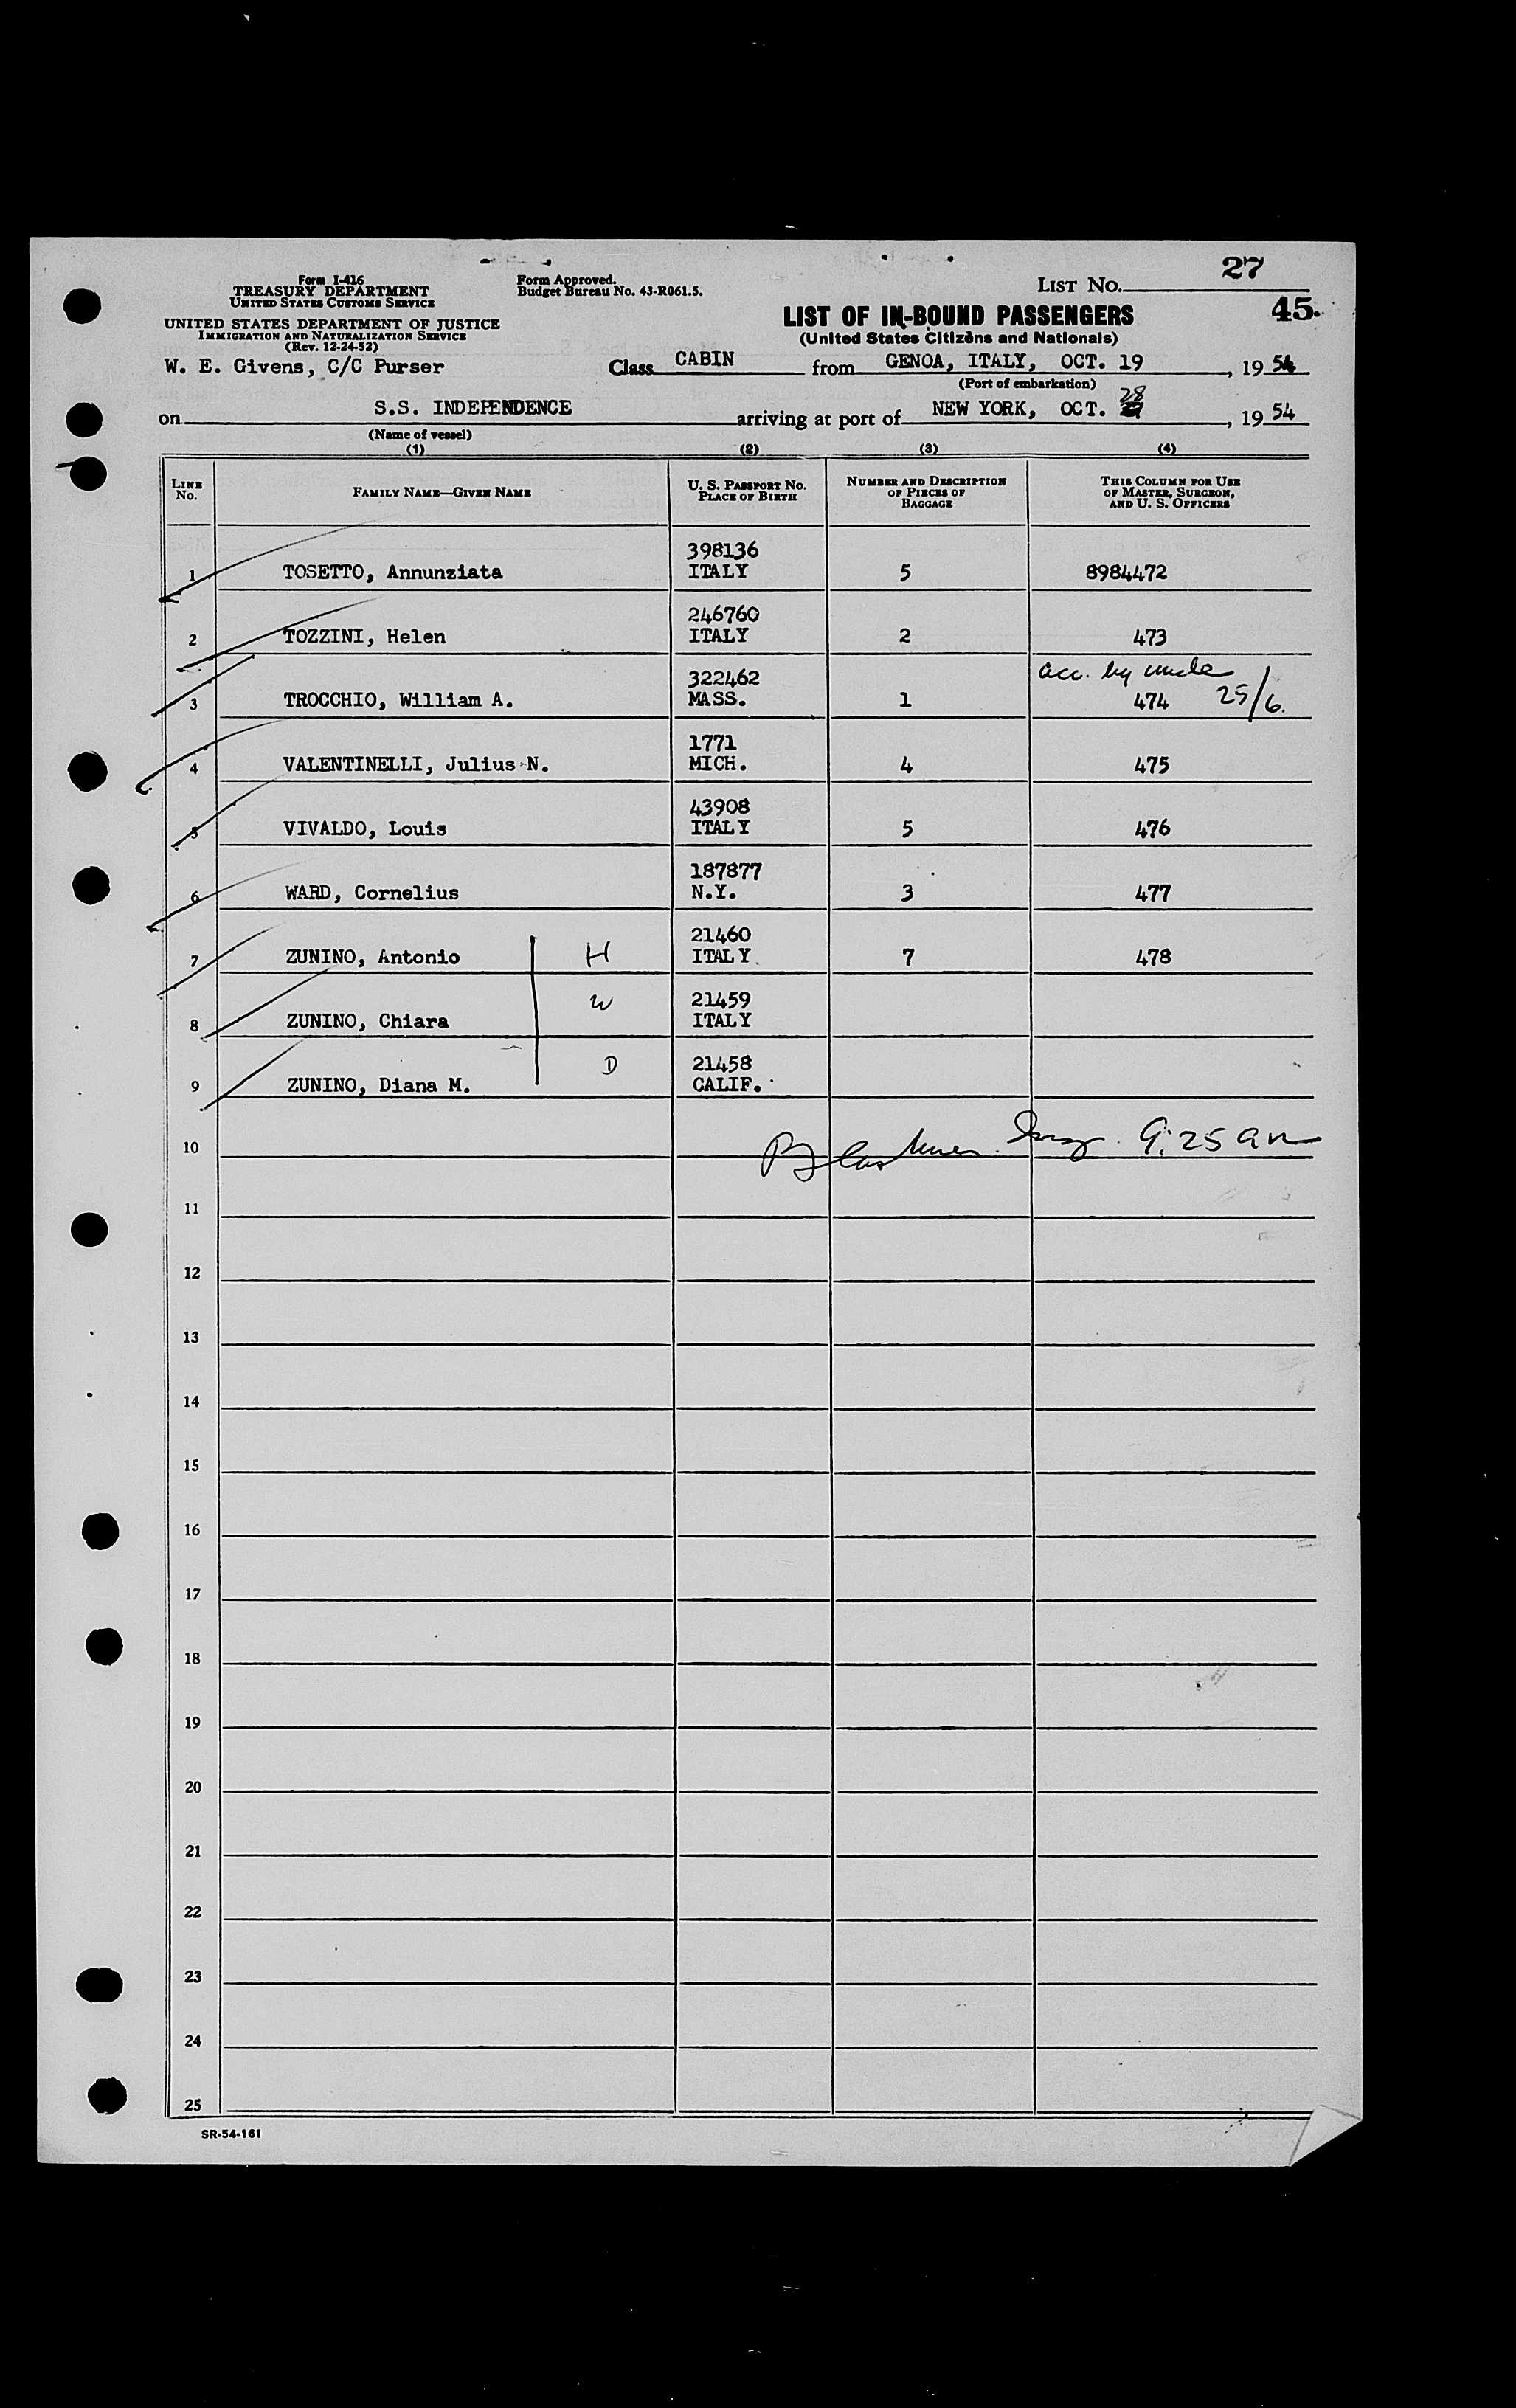 27
Form I-416
TREASURY DEPARTMENT
UNITED STATES CUSTOMS SERVICE
Form Approved.
Budget Bureau No. 43-R061.5.
LIST No.
45.
UNITED STATES DEPARTMENT OF JUSTICE
IMMIGRATION AND NATURALIZATION SERVICE
(Rev. 12-24-52)
LIST OF IN-BOUND PASSENGERS
(United States Citizens and Nationals)
W. E. Givens, C/C Purser Class CABIN from GENOA, ITALY, OCT. 19, 1954
(Port of embarkation)
28
on S.S. INDEPENDENCE arriving at port of NEW YORK, OCT. , 1954
(Name of vessel)
(1) (2) (3) (4)
LINE No. FAMILY NAME—GIVEN NAME U. S. PASSPORT No. PLACE OF BIRTH NUMBER AND DESCRIPTION OF PIECES OF BAGGAGE THIS COLUMN FOR USE OF MASTER, SURGEON, AND U. S. OFFICERS
398136
1 TOSETTO, Annunziata ITALY 5 8984472
246760
2 TOZZINI, Helen ITALY 2 473
322462 acc. by uncle
3 TROCCHIO, William A. MASS. 1 474 25/6.
1771
4 VALENTINELLI, Julius N. MICH. 4 475
43908
5 VIVALDO, Louis ITALY 5 476
187877
6 WARD, Cornelius N.Y. 3 477
21460
7 ZUNINO, Antonio H ITALY 7 478
21459
8 ZUNINO, Chiara W ITALY
21458
9 ZUNINO, Diana M. D CALIF.
10 9:25 am
11
12
13
14
15
16
17
18
19
20
21
22
23
24
25
SR-54-161